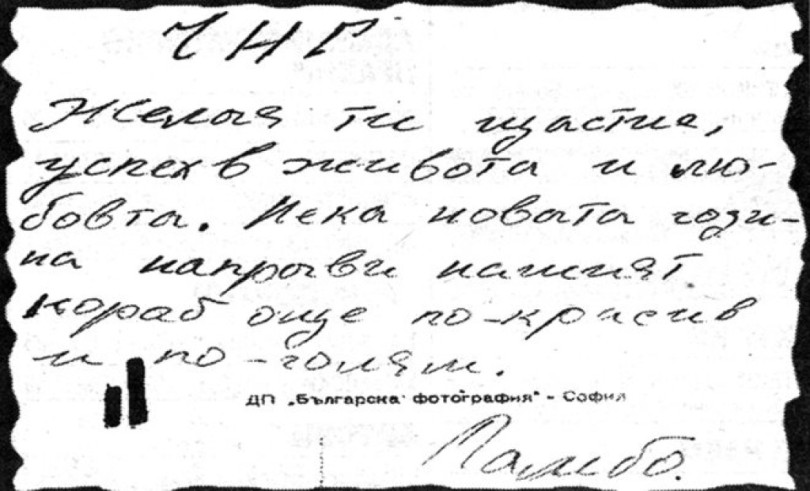 ЧНГ
Желая ти щастие,
успех в живота и лю-
бовта. Нека новата годи-
на направи нашият
кораб още по-красив
и по-голям.
ДП „Българска фотография“ - София